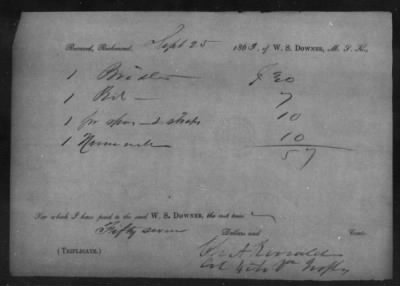 Received, Richmond, Sept 25 1863, of W. S. DOWNER, M. S. K.,
1 Bridle 30
1 Bit 7
1 pr spurs & straps 10
1 10
57
For which I have paid to the said W. S. DOWNER, the sum
Fifty seven Dollars and Cents.
(TRIPLICATE.)
Col